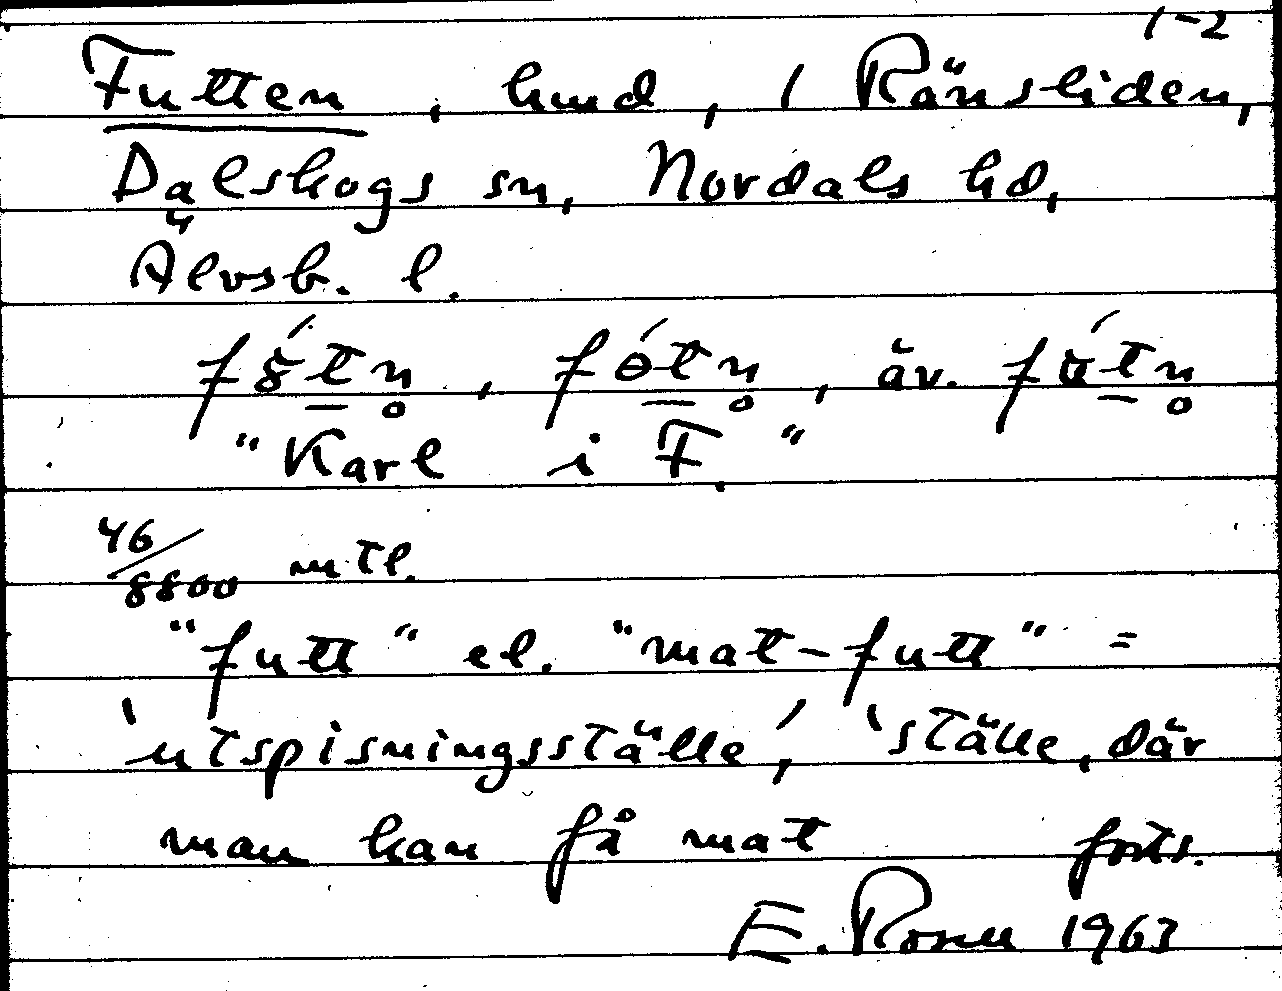 1-2
Futten, hmd, 1 Ränsliden,
Dalskogs sn, Nordals hd,
Älvsb. l.
"Karl i F."
46/8800 mtl.
"futt" el. "mat-futt" =
'utspisningsställe', 'ställe, där
man kan få mat forts.
E. Rosell 1963